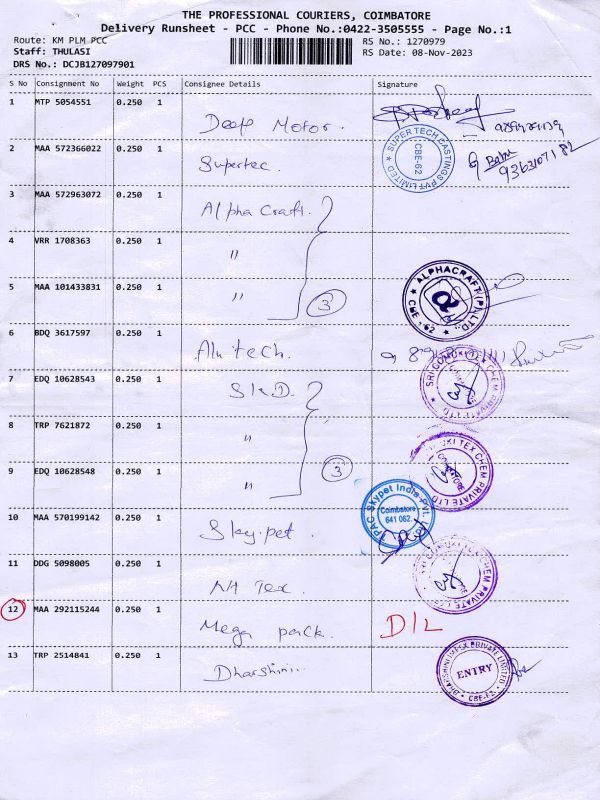 THE PROFESSIONAL COURIERS, COIMBATORE
Delivery Runsheet - PCC - Phone No.:0422-3505555 - Page No.:1
Route: KM PLM PCC
RS No.: 1270979
Staff: THULASI
RS Date: 08-Nov-2023
DRS No.: DCJB127097901
S No Consignment No Weight PCS Consignee Details Signature
1 MTP 5054551 0.250 1 Deep Motor.
2 MAA 572366022 0.250 1 Supertec. SUPER TECH CASTINGS PVT LIMITED CBE-62
9363107182
3 MAA 572963072 0.250 1 Alpha Craft.
4 VRR 1708363 0.250 1 "
5 MAA 101433831 0.250 1 " 3 ALPHACRAFT (P) LTD. CBE - 62
6 BDQ 3617597 0.250 1 Alu tech.
7 EDQ 10628543 0.250 1 S.k.D.
8 TRP 7621872 0.250 1 "
9 EDQ 10628548 0.250 1 " 3 TEX CHEM PRIVATE LTD
10 MAA 570199142 0.250 1 Sky.pet. PAC Skypet India Pvt. Ltd. Coimbatore 641 062.
11 DDG 5098005 0.250 1 Tex.
12 MAA 292115244 0.250 1 Mega pack. D/L
13 TRP 2514841 0.250 1 Dharshini... PRIVATE LIMITED ENTRY CBE-62